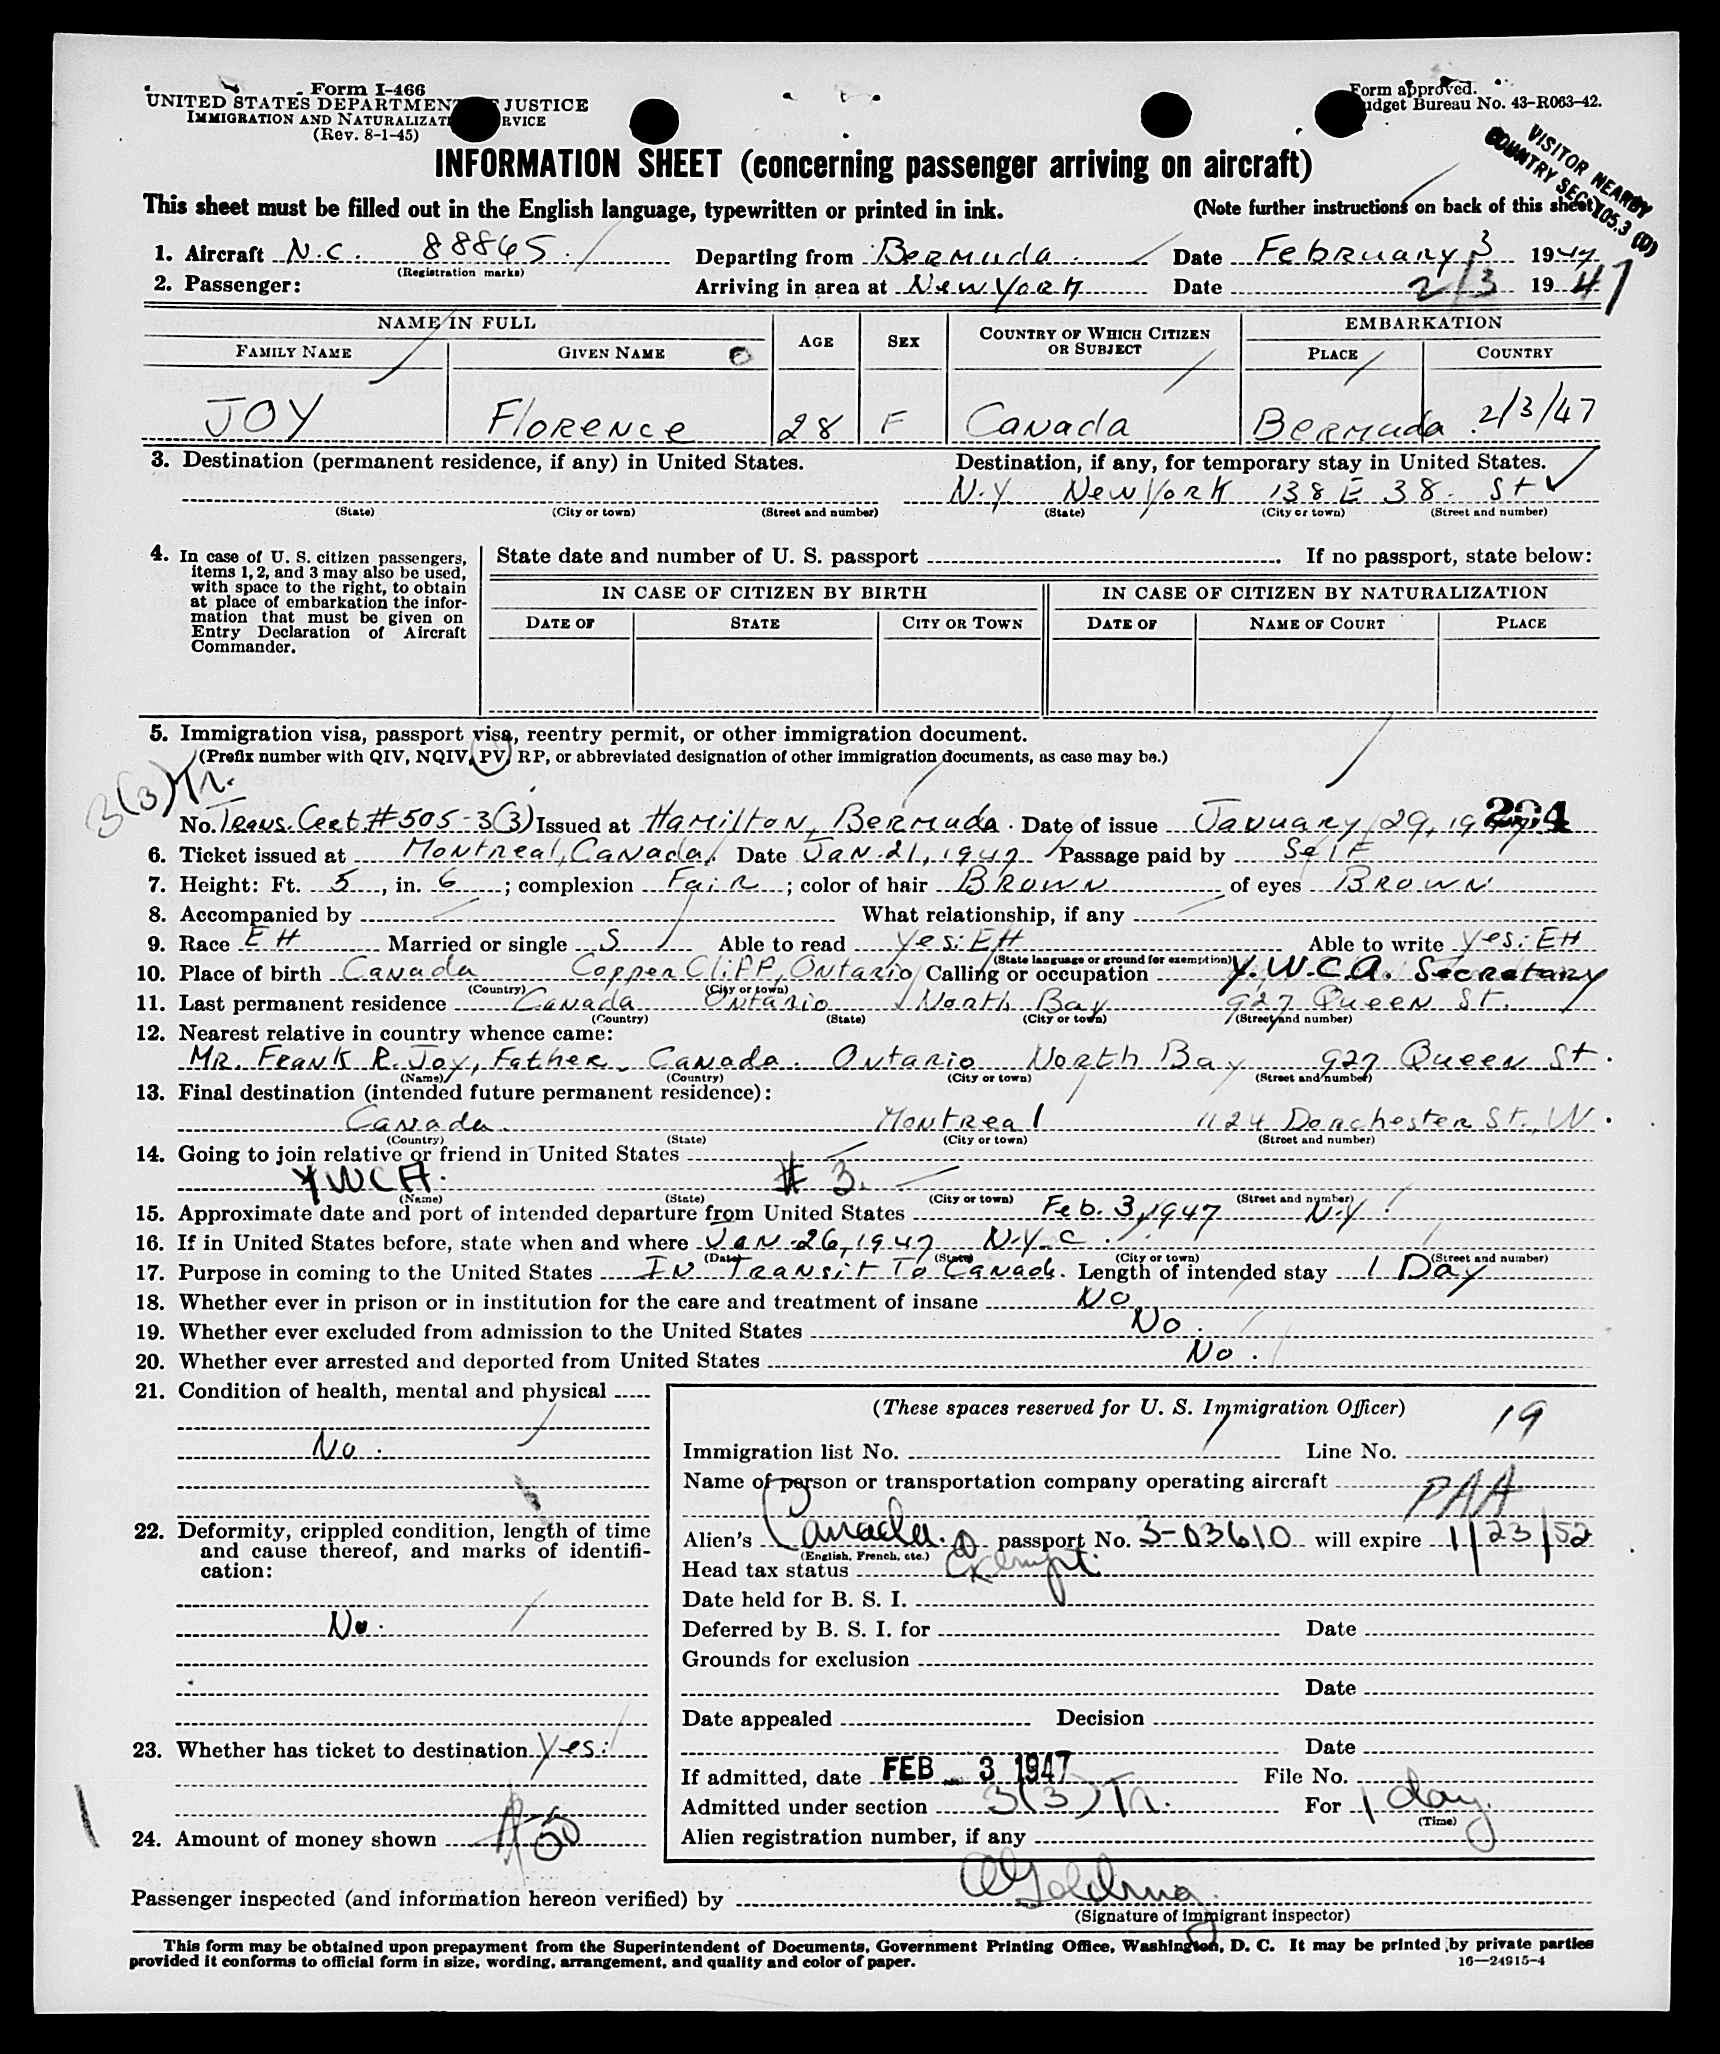 Form I-466
UNITED STATES DEPARTMENT JUSTICE
IMMIGRATION AND NATURALIZAT RVICE
(Rev. 8-1-45)
Form approved.
udget Bureau No. 43-R063-42.
VISITOR NEARBY
COUNTRY SEC. 105.3 (D)
INFORMATION SHEET (concerning passenger arriving on aircraft)
This sheet must be filled out in the English language, typewritten or printed in ink.
(Note further instructions on back of this sheet)
1. Aircraft N.C. 88865. Departing from Bermuda. Date February 3 1947
(Registration marks)
2. Passenger: Arriving in area at New York Date 2/3 1947
NAME IN FULL
FAMILY NAME GIVEN NAME AGE SEX COUNTRY OF WHICH CITIZEN OR SUBJECT EMBARKATION
PLACE COUNTRY
JOY Florence 28 F Canada Bermuda. 2/3/47
3. Destination (permanent residence, if any) in United States. Destination, if any, for temporary stay in United States.
N.Y. New York 138 E 38. St
(State) (City or town) (Street and number) (State) (City or town) (Street and number)
4. In case of U. S. citizen passengers,
items 1, 2, and 3 may also be used,
with space to the right, to obtain
at place of embarkation the infor-
mation that must be given on
Entry Declaration of Aircraft
Commander.
State date and number of U. S. passport If no passport, state below:
IN CASE OF CITIZEN BY BIRTH IN CASE OF CITIZEN BY NATURALIZATION
DATE OF STATE CITY OR TOWN DATE OF NAME OF COURT PLACE
5. Immigration visa, passport visa, reentry permit, or other immigration document.
(Prefix number with QIV, NQIV, PV, RP, or abbreviated designation of other immigration documents, as case may be.)
3(3)Tr.
No. Trans. Cert. #505-3(3) Issued at Hamilton, Bermuda. Date of issue January 29, 1947
294
6. Ticket issued at Montreal, Canada. Date Jan. 21, 1947 Passage paid by Self
7. Height: Ft. 5, in. 6; complexion Fair; color of hair Brown of eyes Brown
8. Accompanied by What relationship, if any
9. Race EH Married or single S Able to read Yes: EH Able to write Yes: EH
(State language or ground for exemption)
10. Place of birth Canada Copper Cliff, Ontario Calling or occupation Y.W.C.A. Secretary
(Country) (City or town)
11. Last permanent residence Canada Ontario North Bay 927 Queen St.
(Country) (State) (City or town) (Street and number)
12. Nearest relative in country whence came:
Mr. Frank R. Joy, Father. Canada. Ontario North Bay 927 Queen St.
(Name) (Country) (City or town) (Street and number)
13. Final destination (intended future permanent residence):
Canada. Montreal 1124 Dorchester St., W.
(Country) (State) (City or town) (Street and number)
14. Going to join relative or friend in United States
YWCA. # 3.
(Name) (State) (City or town) (Street and number)
15. Approximate date and port of intended departure from United States Feb. 3, 1947 N.Y.
16. If in United States before, state when and where Jan. 26, 1947 N.Y.C.
(Date) (State) (City or town) (Street and number)
17. Purpose in coming to the United States In Transit To Canada. Length of intended stay 1 Day
18. Whether ever in prison or in institution for the care and treatment of insane No
19. Whether ever excluded from admission to the United States No.
20. Whether ever arrested and deported from United States No.
21. Condition of health, mental and physical
No.
22. Deformity, crippled condition, length of time
and cause thereof, and marks of identifi-
cation:
No.
23. Whether has ticket to destination Yes.
24. Amount of money shown $50
(These spaces reserved for U. S. Immigration Officer)
Immigration list No. Line No. 19
Name of person or transportation company operating aircraft
PAA
Alien's Canada. passport No. 3-03610 will expire 1/23/52
(English, French, etc.)
Head tax status Exempt.
Date held for B. S. I.
Deferred by B. S. I. for Date
Grounds for exclusion
Date
Date appealed Decision
Date
If admitted, date FEB 3 1947 File No.
Admitted under section 3(3)Tr. For 1 day.
(Time)
Alien registration number, if any
Passenger inspected (and information hereon verified) by
(Signature of immigrant inspector)
This form may be obtained upon prepayment from the Superintendent of Documents, Government Printing Office, Washington, D. C. It may be printed by private parties
provided it conforms to official form in size, wording, arrangement, and quality and color of paper.
16—24915-4